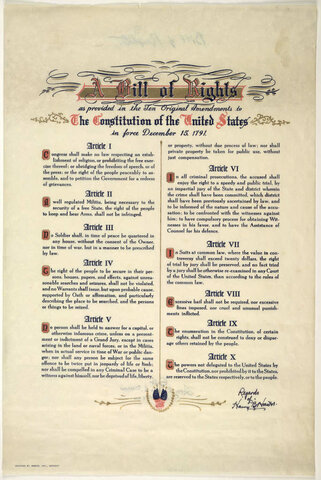 A Bill of Rights
as provided in the Ten Original Amendments to
The Constitution of the United States
in force December 15, 1791.
Article I
Congress shall make no law respecting an establishment of religion, or prohibiting the free exercise thereof; or abridging the freedom of speech, or of the press; or the right of the people peaceably to assemble, and to petition the Government for a redress of grievances.
Article II
A well regulated Militia, being necessary to the security of a free State, the right of the people to keep and bear Arms, shall not be infringed.
Article III
No Soldier shall, in time of peace be quartered in any house, without the consent of the Owner, nor in time of war, but in a manner to be prescribed by law.
Article IV
The right of the people to be secure in their persons, houses, papers, and effects, against unreasonable searches and seizures, shall not be violated, and no Warrants shall issue but upon probable cause, supported by Oath or affirmation, and particularly describing the place to be searched, and the persons or things to be seized.
Article V
No person shall be held to answer for a capital, or otherwise infamous crime, unless on a presentment or indictment of a Grand Jury, except in cases arising in the land or naval forces, or in the Militia, when in actual service in time of War or public danger; nor shall any person be subject for the same offence to be twice put in jeopardy of life or limb; nor shall be compelled in any Criminal Case to be a witness against himself, nor be deprived of life, liberty,
or property, without due process of law; nor shall private property be taken for public use, without just compensation.
Article VI
In all criminal prosecutions, the accused shall enjoy the right to a speedy and public trial, by an impartial jury of the State and district wherein the crime shall have been committed, which district shall have been previously ascertained by law, and to be informed of the nature and cause of the accusation; to be confronted with the witnesses against him; to have compulsory process for obtaining Witnesses in his favor, and to have the Assistance of Counsel for his defence.
Article VII
In Suits at common law, where the value in controversy shall exceed twenty dollars, the right of trial by jury shall be preserved, and no fact tried by a jury shall be otherwise re-examined in any Court of the United States, than according to the rules of the common law.
Article VIII
Excessive bail shall not be required, nor excessive fines imposed, nor cruel and unusual punishments inflicted.
Article IX
The enumeration in the Constitution, of certain rights, shall not be construed to deny or disparage others retained by the people.
Article X
The powers not delegated to the United States by the Constitution, nor prohibited by it to the States, are reserved to the States respectively, or to the people.
Regards
Harry Truman